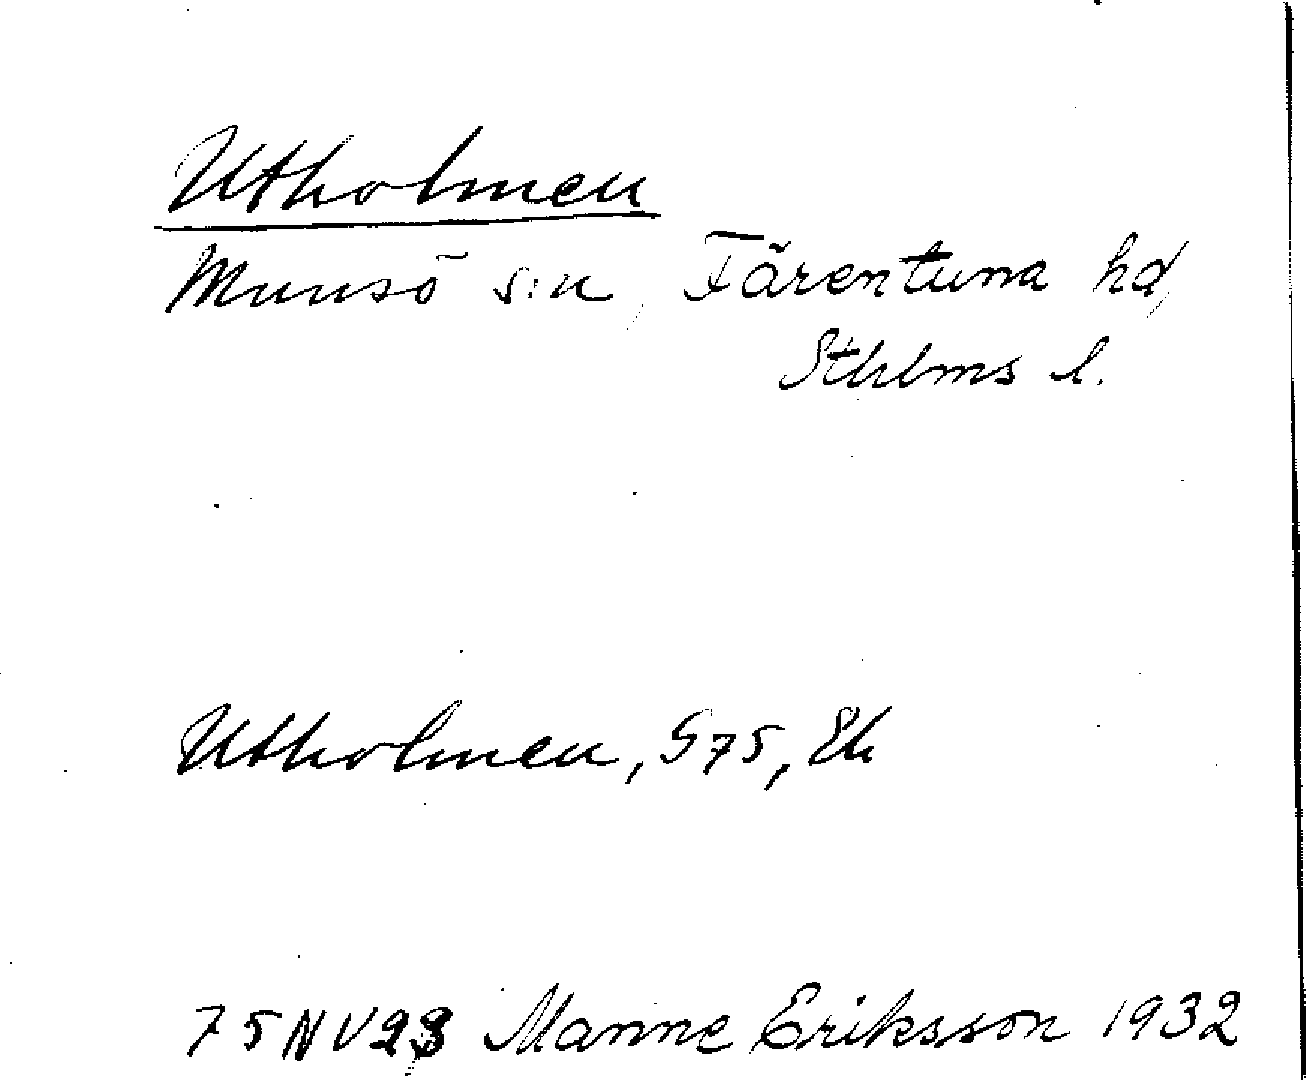 Utholmen
Munsö s:n, Färentuna hd,
Sthlms l.
Utholmen, S75, Ek
75NV23 Manne Eriksson 1932